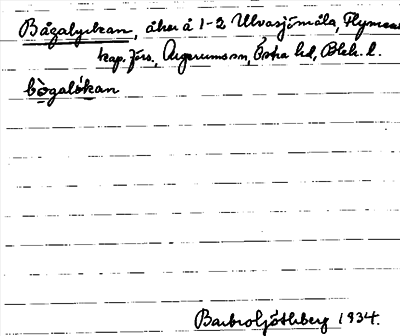 Bågalyckan, åker å 1-2 Ulvasjömåla, Flymens
kap. förs., Augerums sn, Östra hd, Blek. l.
bògalókan
Barbro Ljóthberg 1934.